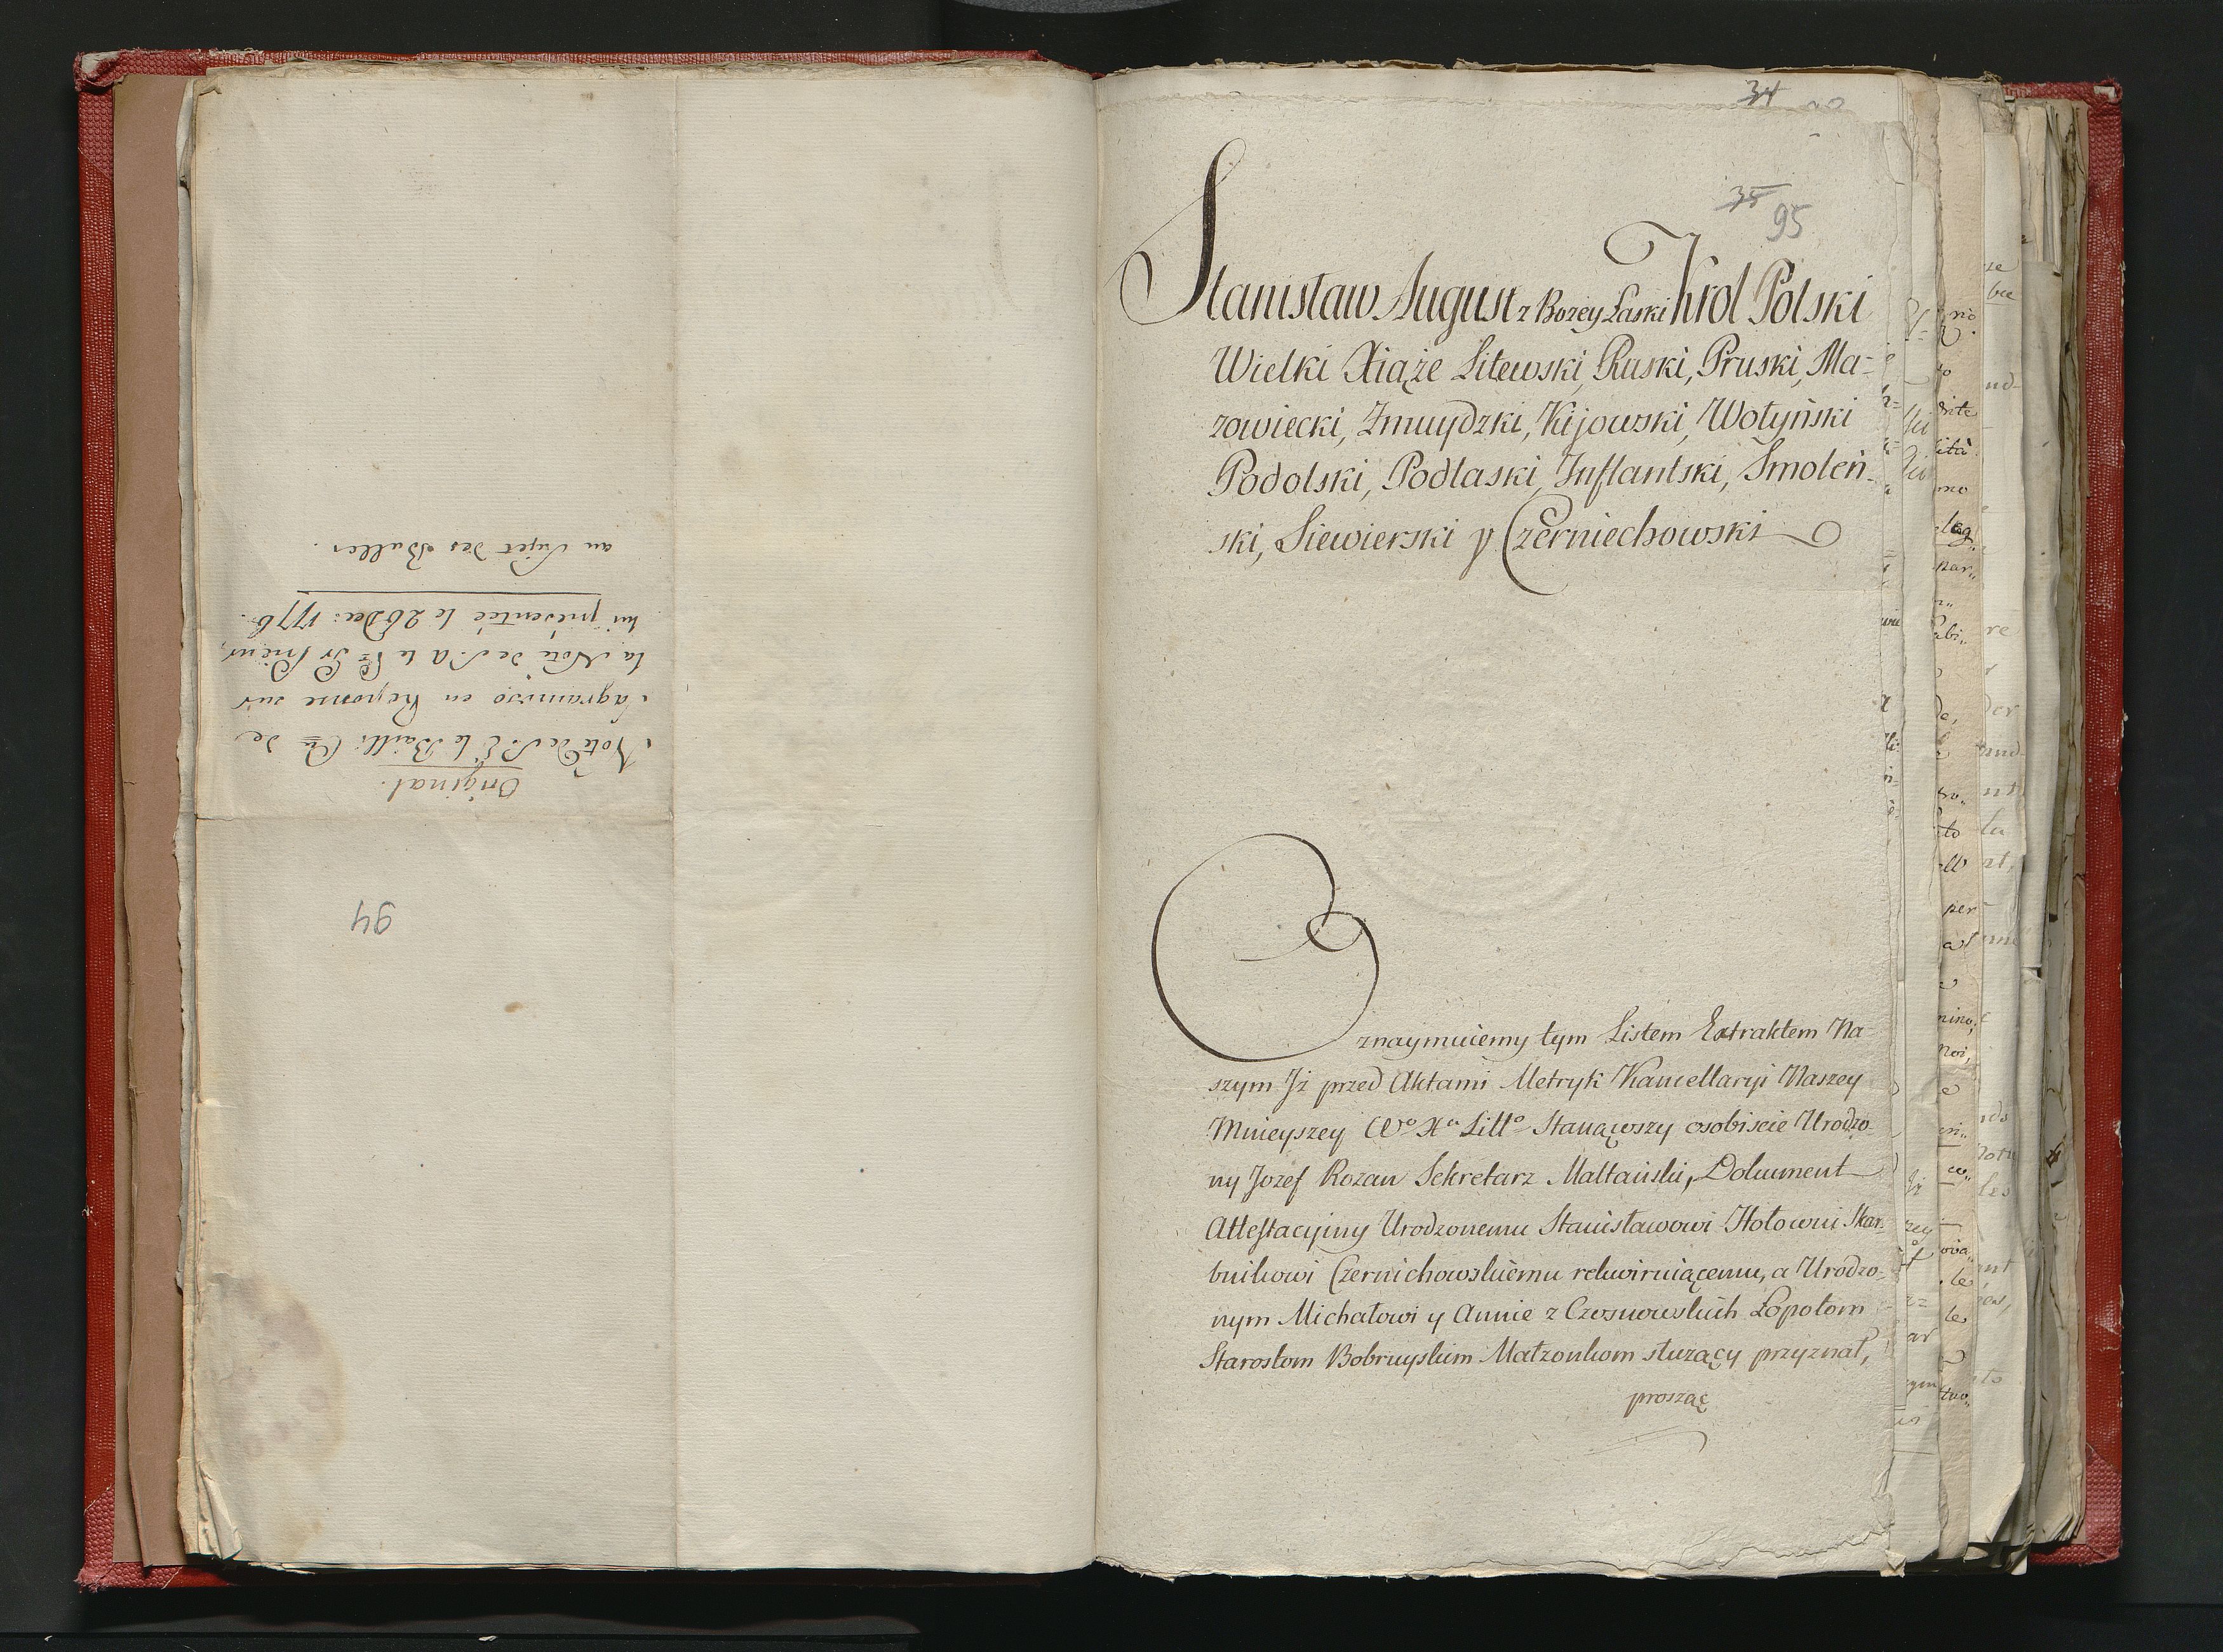 Original.
Note de S: E le Bailli Cte de
Sagramoso en Reponse sur
la Note de S. A le Pce Gr Prieur,
lui presentée le 26 Dec: 1776.
au Sujet des Bulles.
94
34
35
95
Stanisław August z Bozey Łaski Krol Polski
Wielki Xiąże Litewski, Ruski, Pruski, Ma-
zowiecki, Zmuydzki, Kijowski, Wołyński
Podolski, Podlaski, Inflantski, Smoleń-
ski, Siewierski y Czerniechowski
Oznaymuiemy tym Listem Extraktem Na-
szym Iż przed Aktami Metryk Kancellaryi Naszey
Mnieyszey Wo Xa Litto Stanąwszy osobiscie Urodzo-
ny Jozef Rozan Sekretarz Maltański, Dokument
Attestacyiny Urodzonemu Stanisławowi Hołowni Skar-
bnikowi Czernichowskiemu rekwiruiącemu, a Urodzo-
nym Michałowi y Annie z Czosnowskich Łopotom
Starostom Bobruyskim Małzonkom słuzący przyznał,
prosząc